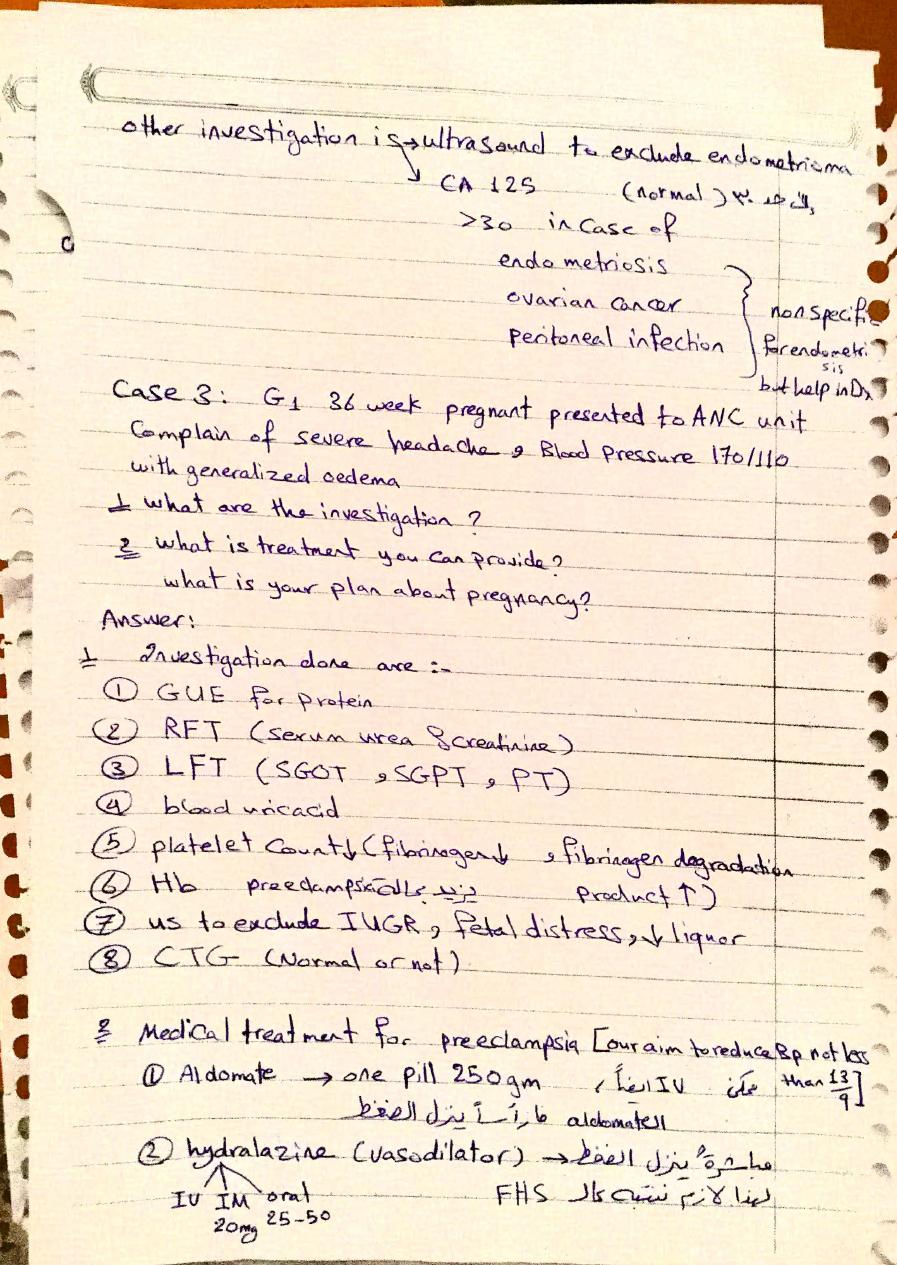 other investigation is → ultrasound to exclude endometrioma
CA 125 (normal) ٣٠
>30 in case of
endometriosis
ovarian cancer
peritoneal infection
non specific
for endometri
sis
but help in Dx
Case 3: G1 36 week pregnant presented to ANC unit
Complain of severe headache , Blood Pressure 170/110
with generalized oedema
1 what are the investigation ?
2 what is treatment you can provide?
what is your plan about pregnancy?
Answer:
1 Investigation done are :-
① GUE for protein
② RFT (serum urea & creatinine)
③ LFT (SGOT , SGPT , PT)
④ blood uric acid
⑤ platelet count↓ (fibrinogen↓ , fibrinogen degradation
product ↑)
⑥ Hb يزيد بالـ preeclampsia
⑦ us to exclude IUGR , fetal distress, ↓ liquor
⑧ CTG (Normal or not)
2 Medical treatment for preeclampsia [our aim to reduce Bp not less
than 13/9]
① Aldomate → one pill 250gm , ممكن IV ايضاً
الـ aldomate ينزل الضغط
② hydralazine (vasodilator) → مباشرةً ينزل الضغط
لهذا لازم ننتبه عالـ FHS
IV IM oral
20mg 25-50